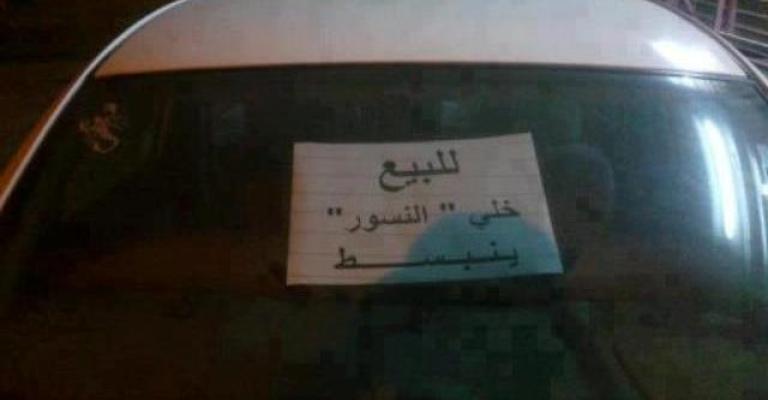 للبيع
خلي "النسور"
ينبسط